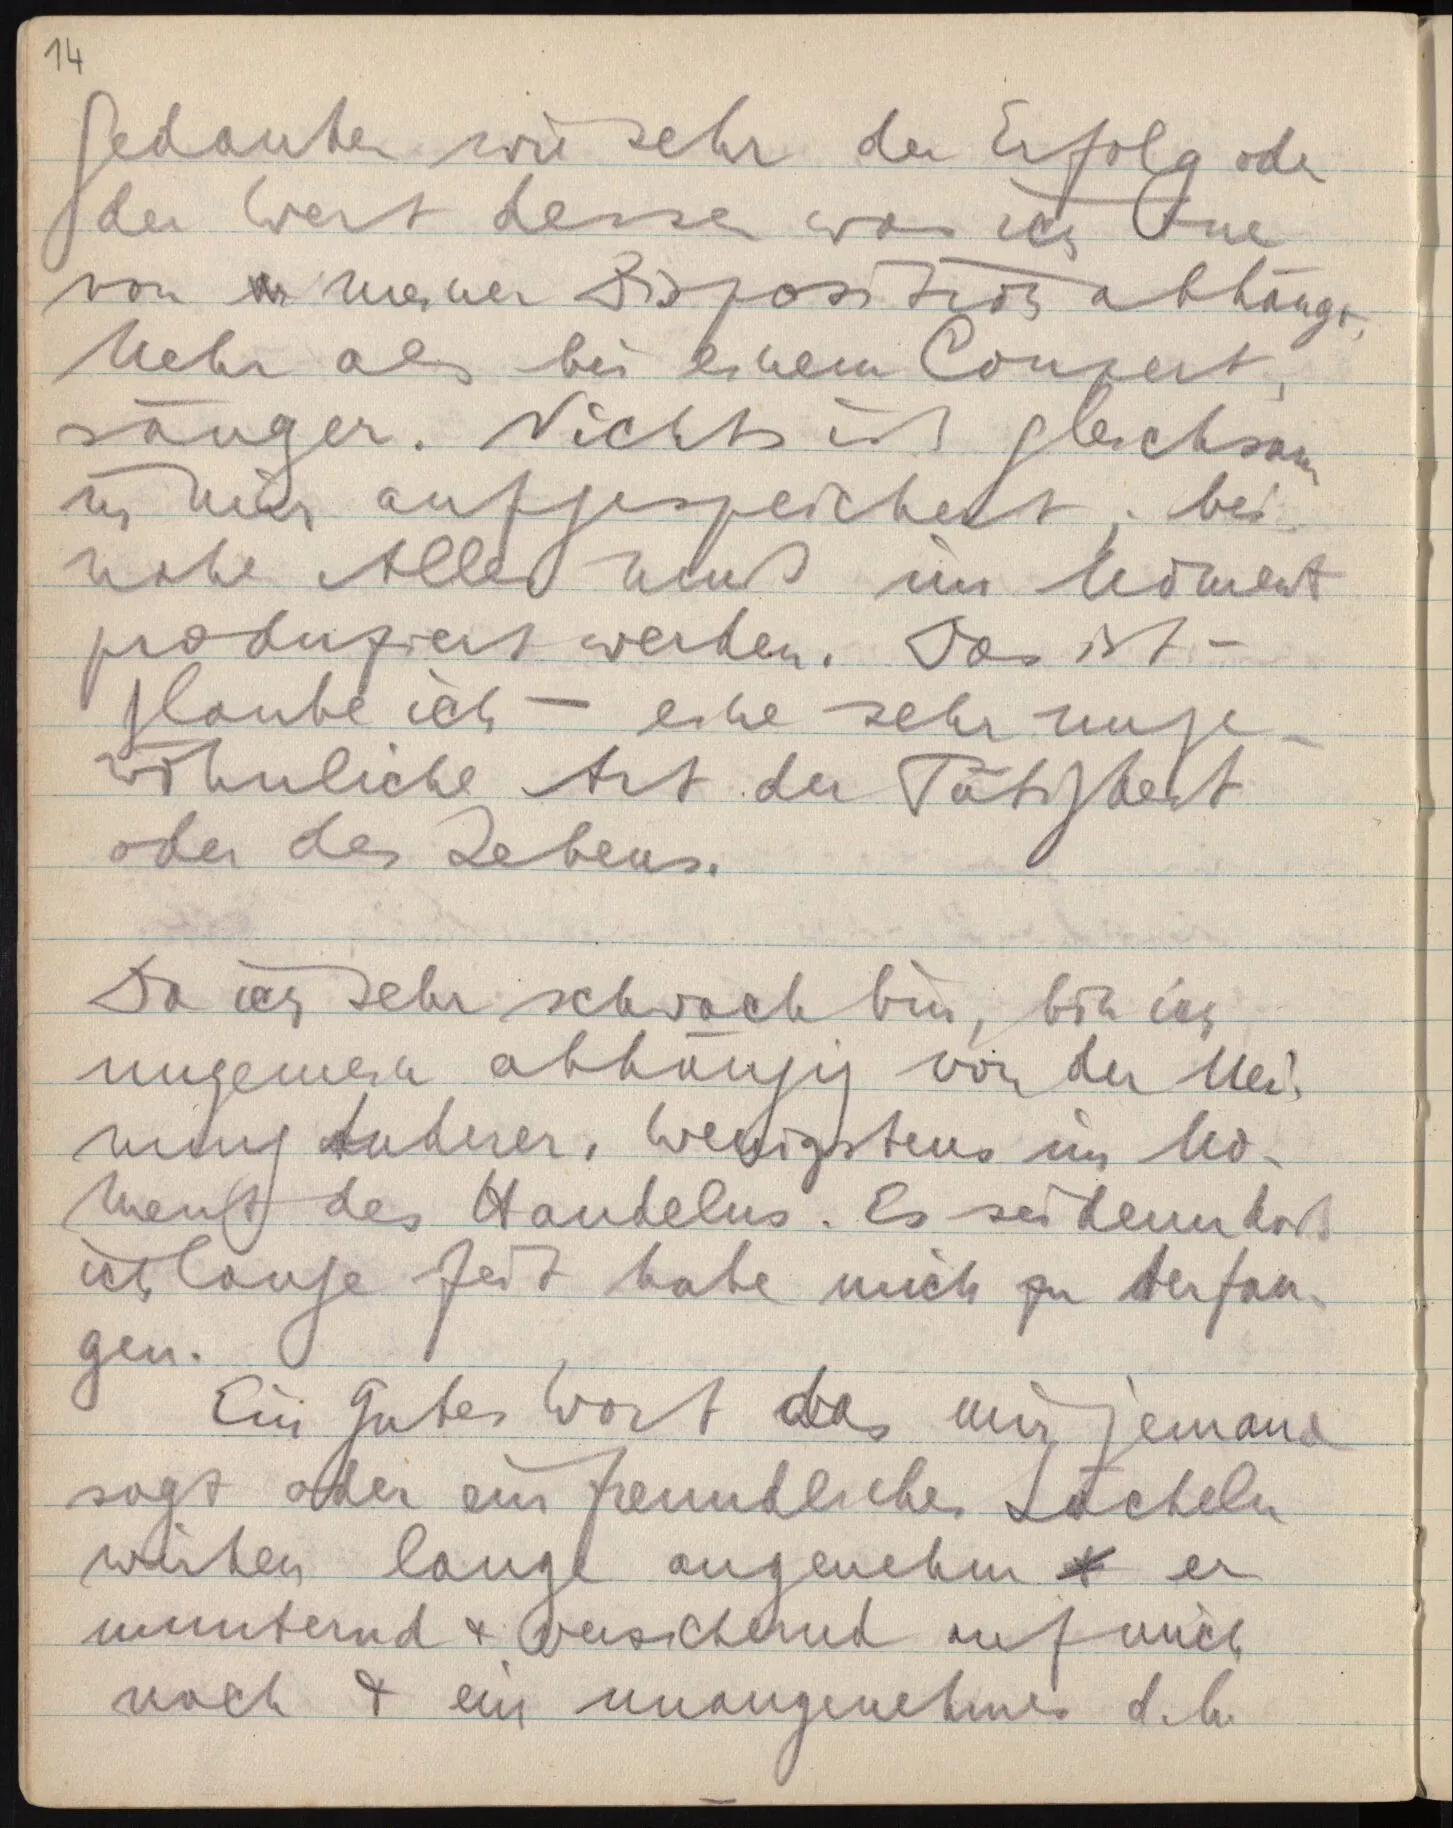 14
Gedanken wie sehr der Erfolg oder
der Wert dessen was ich tue
von meiner Disposition abhängt,
Mehr als bei einem Conzert-
sänger. Nichts ist gleichsam
in mir aufgespeichert; bei-
nahe Alles muß im Moment
produziert werden. Das ist –
glaube ich – eine sehr unge-
wöhnliche Art der Tätigkeit
oder des Lebens.
Da ich sehr schwach bin, bin ich
ungemein abhängig von der Mei-
nung Anderer. Wenigstens im Mo-
ment des Handelns. Es sei denn daß
ich lange Zeit habe mich zu derfan-
gen.
Ein gutes Wort das mir jemand
sagt oder ein freundliches Lächeln
wirken lange angenehm er
munternd & versichernd auf mich
nach & ein unangenehmes d.h.